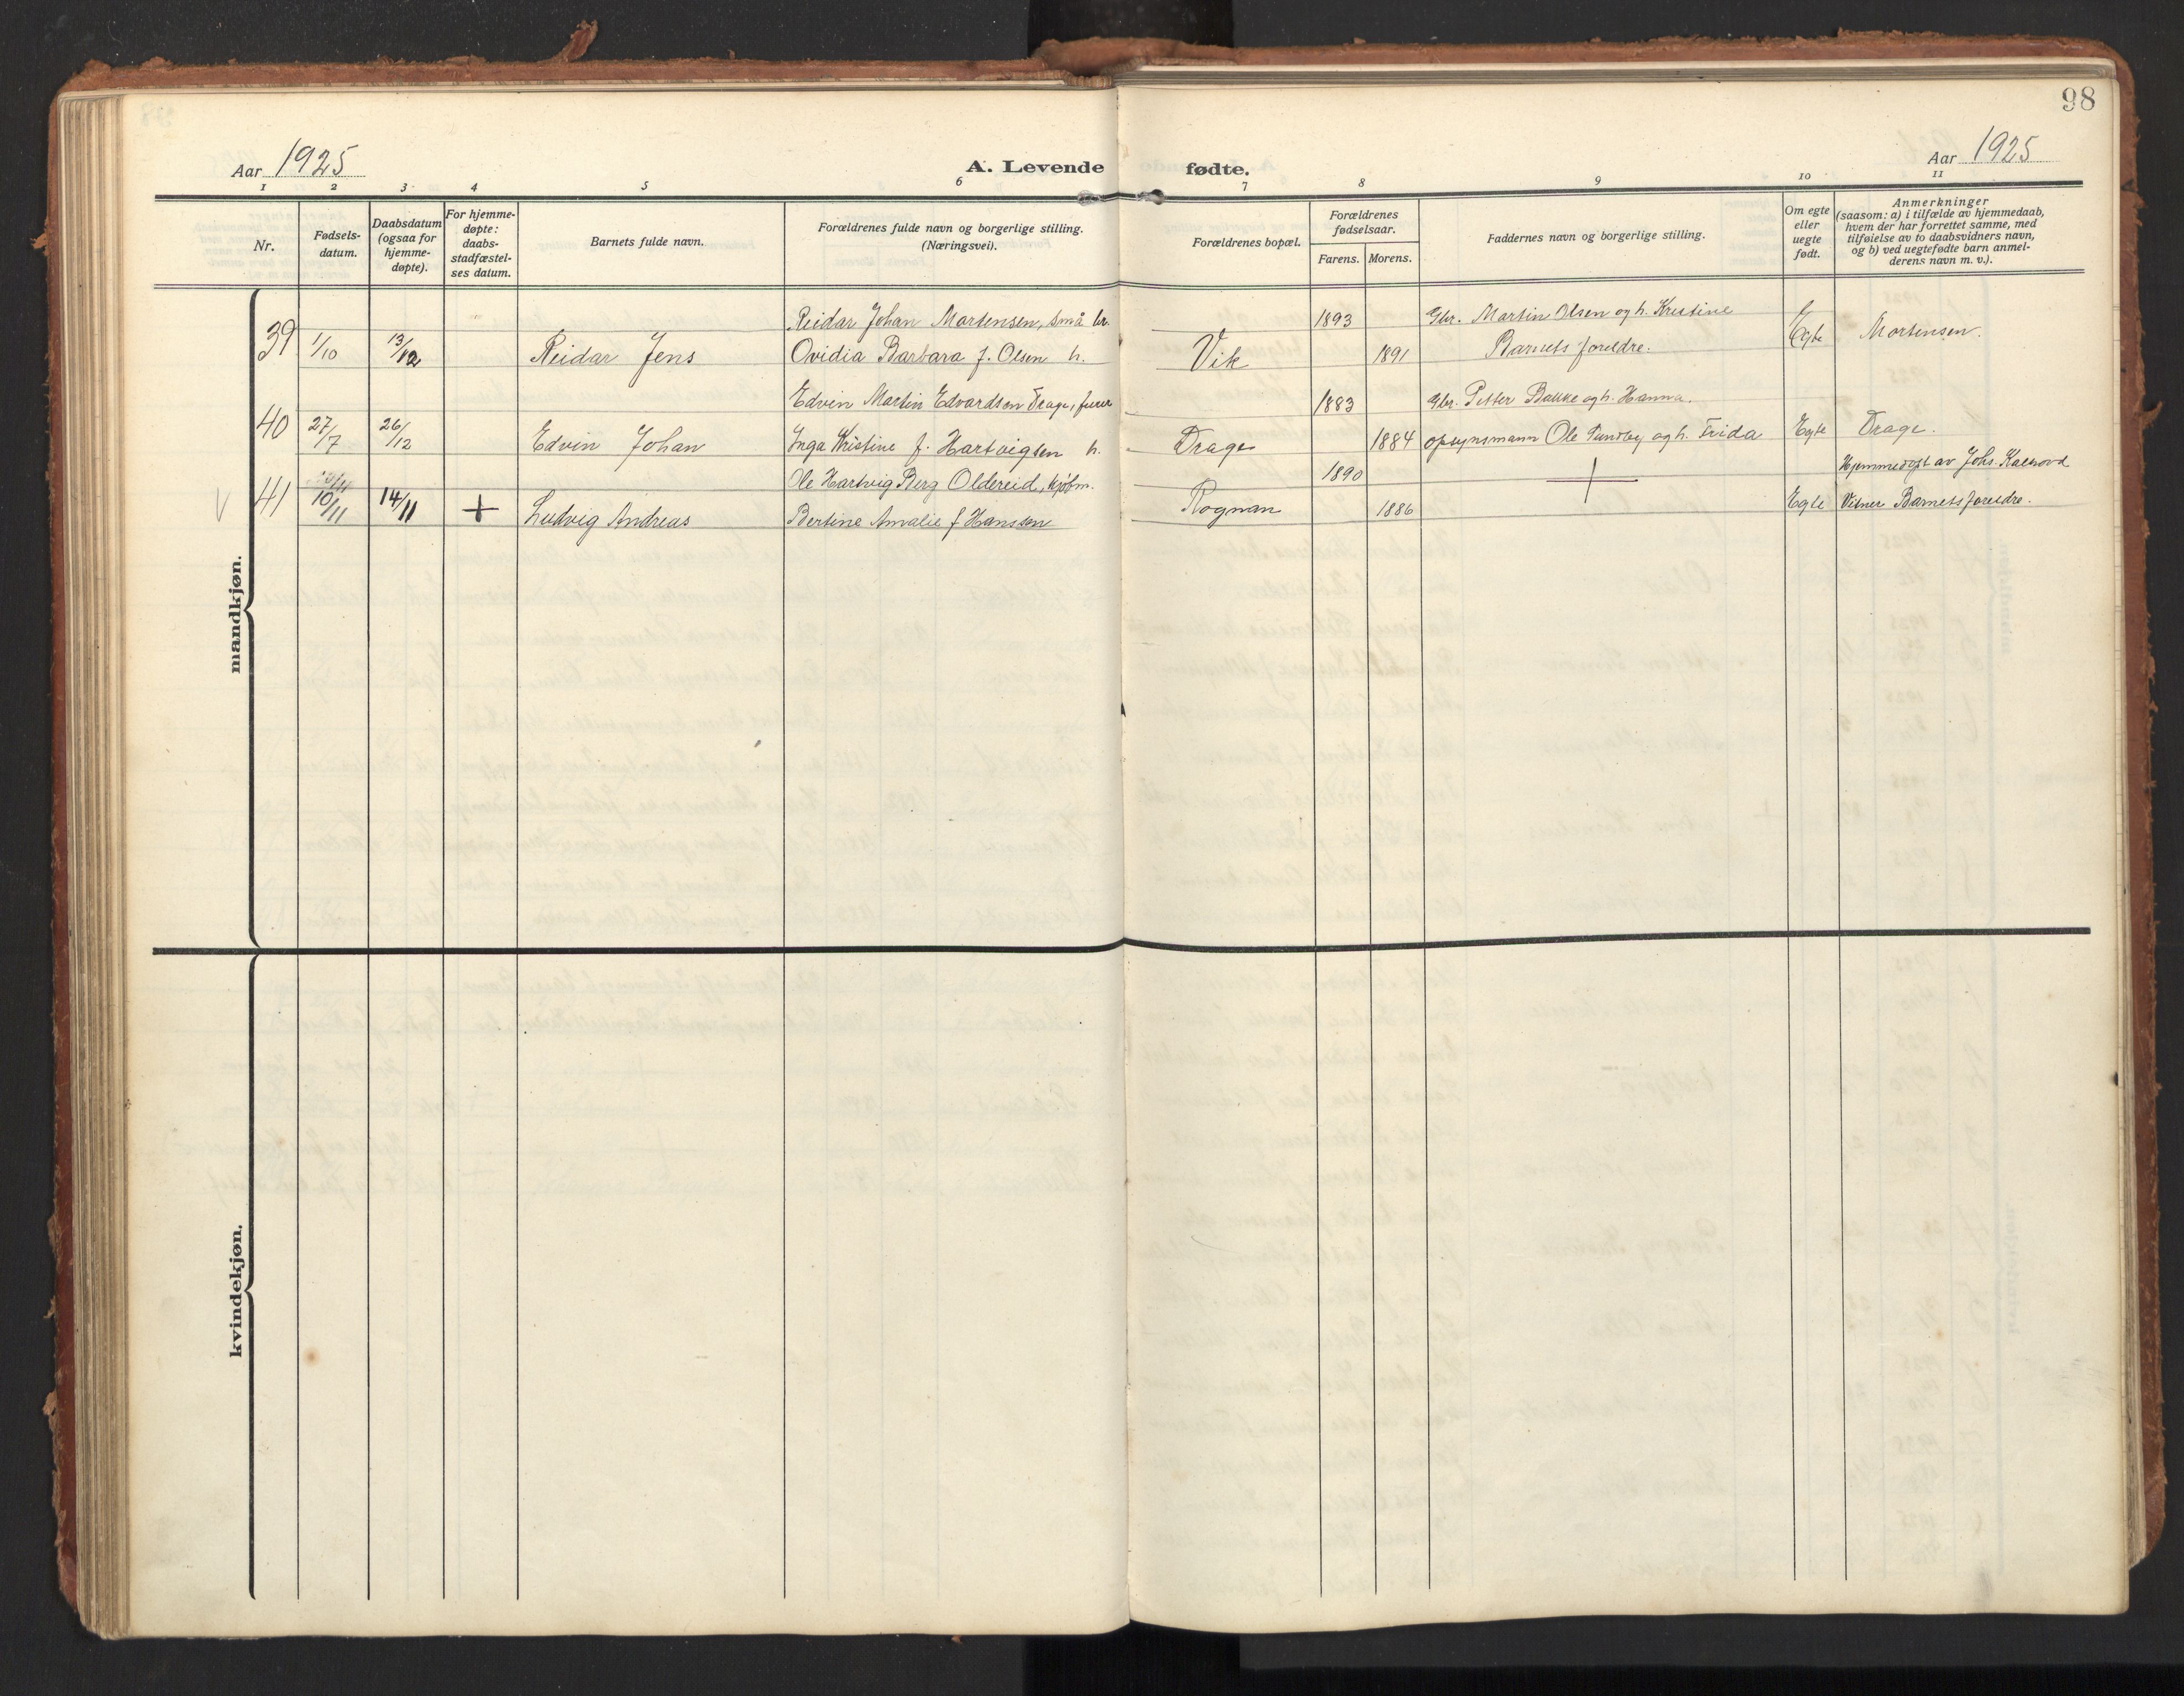 98
Aar 1925
A. Levende fødte.
Aar 1925
1 2 3 4 5 6 7 8 9 10 11
Nr.
Fødsels-
datum.
Daabsdatum
(ogsaa for
hjemme-
døpte).
For hjemme-
døpte:
daabs-
stadfæstel-
ses datum.
Barnets fulde navn.
Forældrenes fulde navn og borgerlige stilling.
(Næringsvei).
Forældrenes bopæl.
Forældrenes
fødselsaar.
Farens. Morens.
Faddernes navn og borgerlige stilling.
Om egte
eller
uegte
født.
Anmerkninger
(saasom: a) i tilfælde av hjemmedaab,
hvem der har forrettet samme, med
tilføielse av to daabsvidners navn,
og b) ved uegtefødte barn anmel-
derens navn m. v.).
mandkjøn.
Reidar Johan Mortensen, små br. 1893 Gbr. Martin Olsen og h. Kristine
39 1/10 13/12 Reidar Jens Ovidia Barbara f. Olsen h. Vik 1891 Barnets foreldre. Egte Mortensen.
Edvin Martin Edvardsen Drage, 1883 Gbr. Petter Bakke og h. Hanna.
40 27/7 26/12 Edvin Johan Inga Kristine f. Hartvigsen h. Drage 1884 opsynsmann Ole og h. Frida Egte Drage.
Ole Hartvig Berg Oldereid, kjøbm. 1890 Hjemmedøpt av Johs.
V 41 10/11 14/11 + Ludvig Andreas Bertine Amalie f Hanssen Rognan 1886 + Egte Vitner Barnets foreldre.
kvindekjøn.